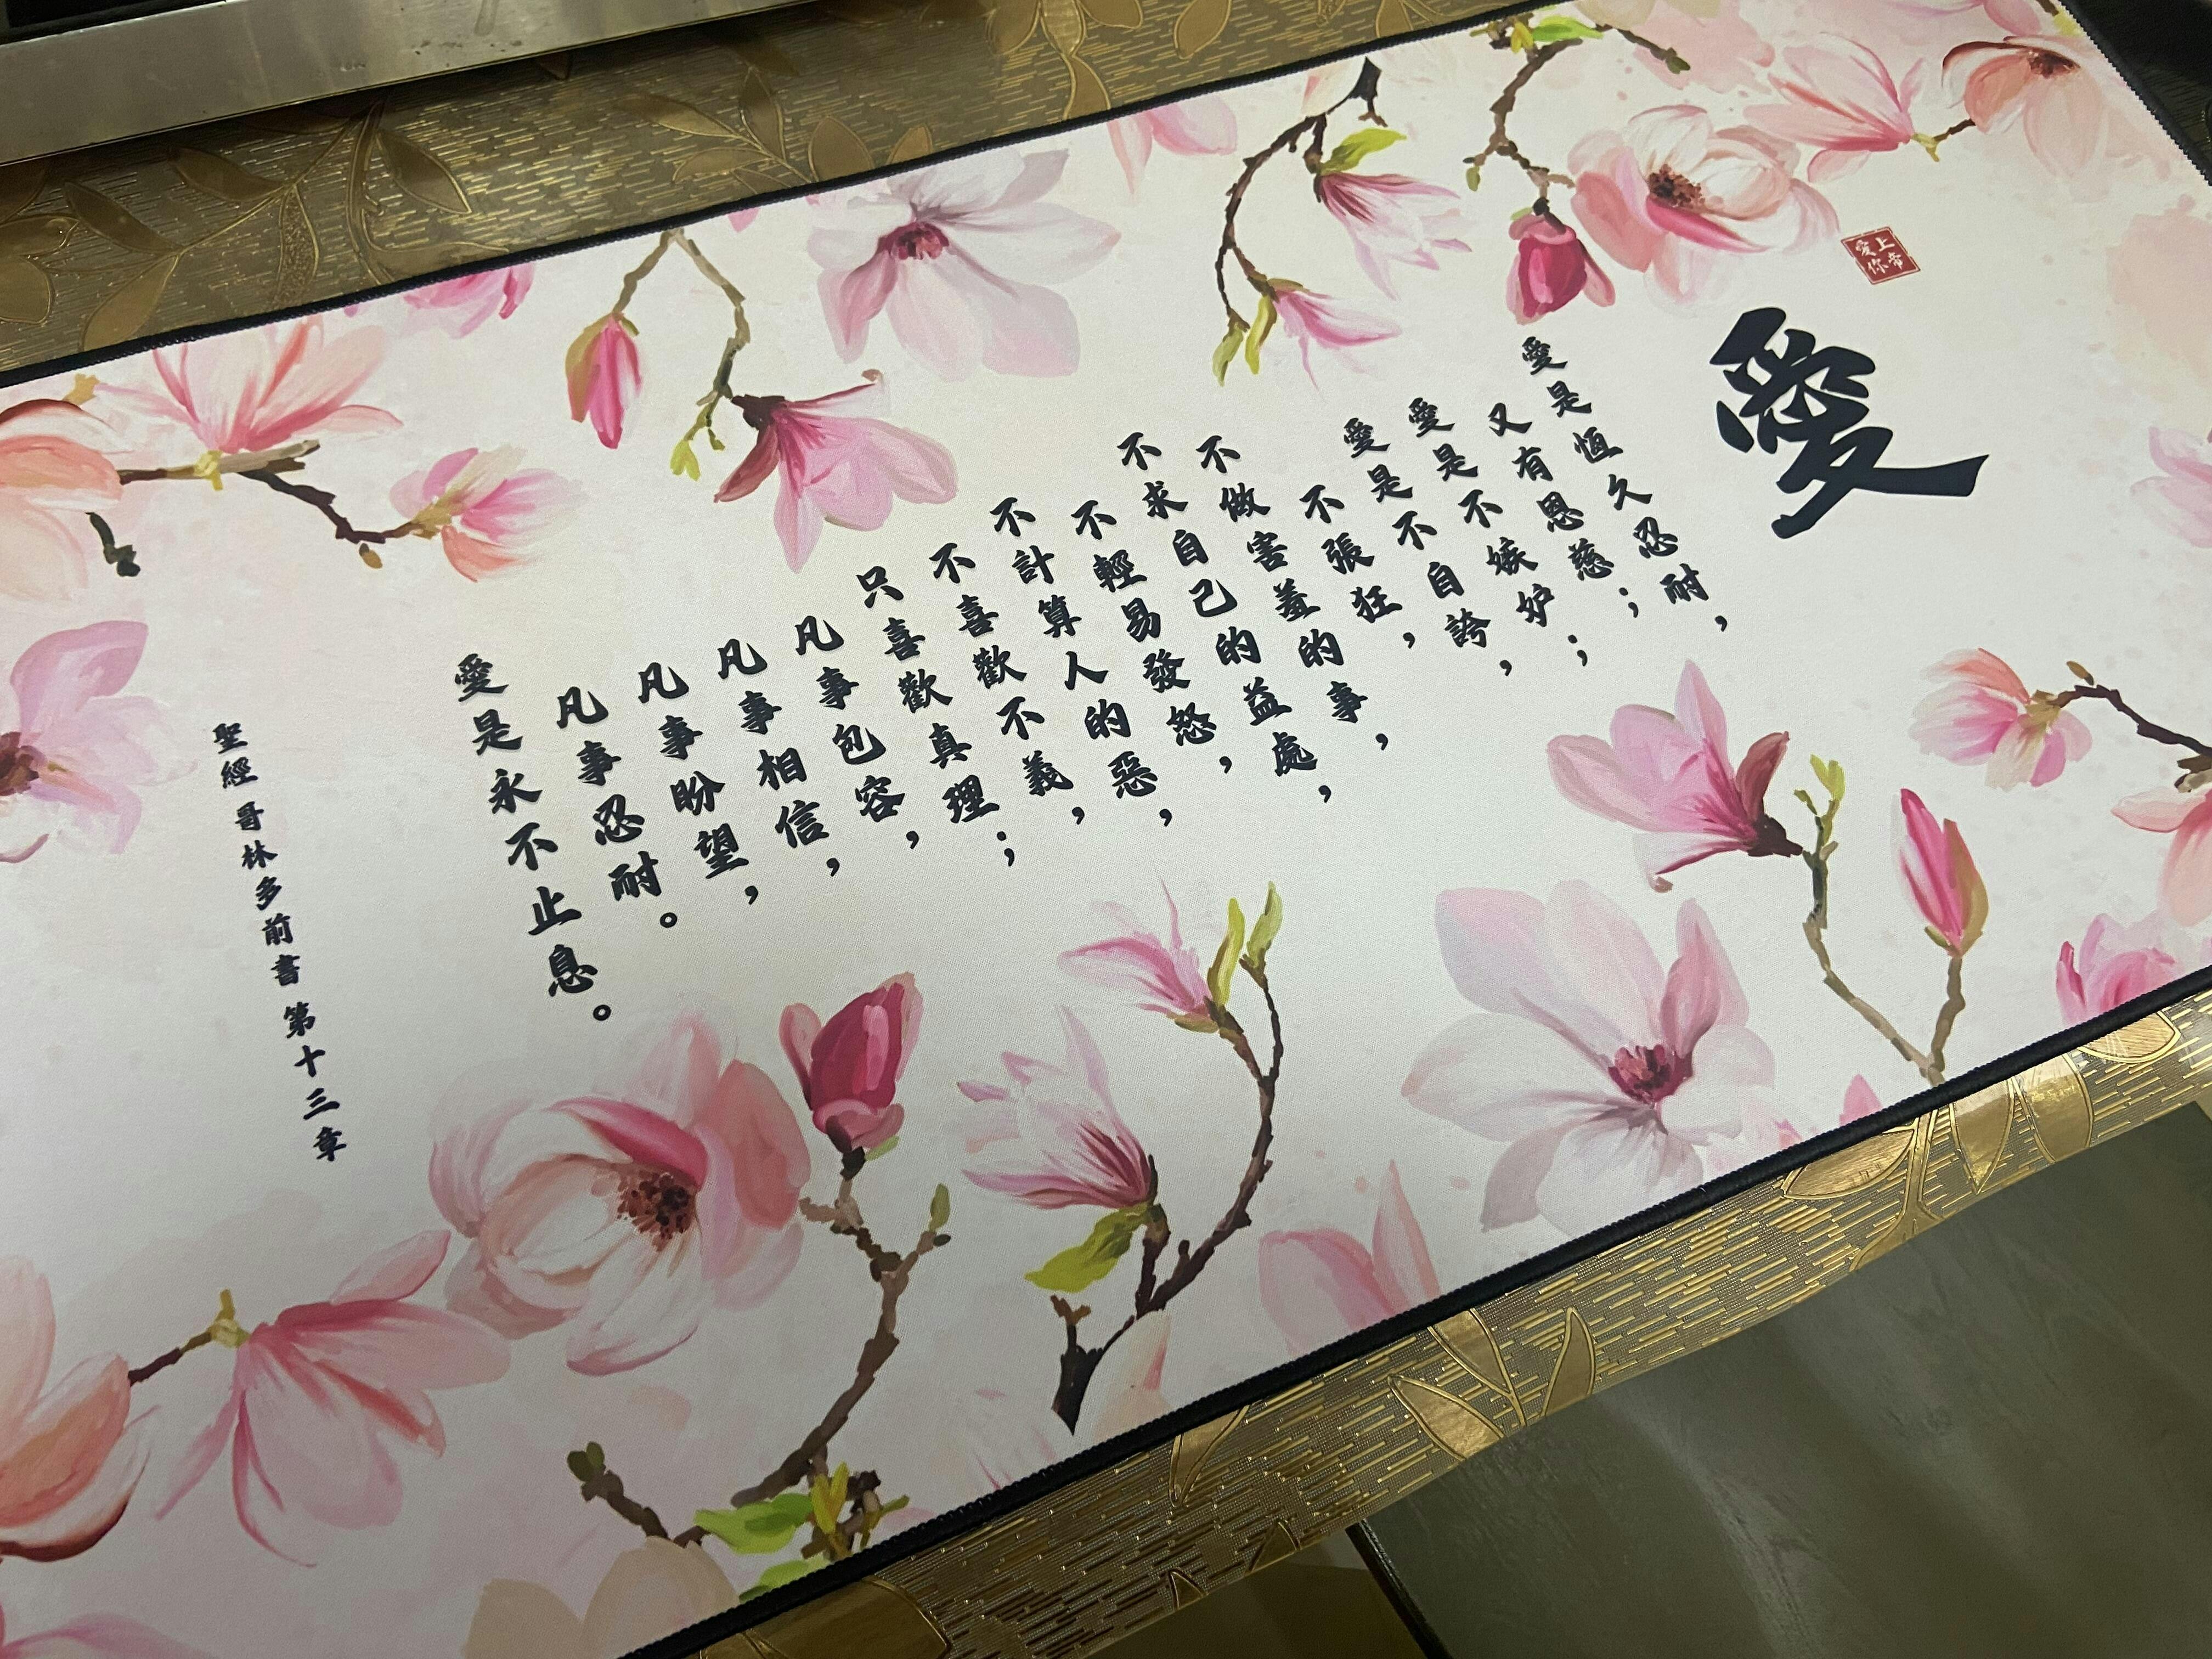 上帝愛你
愛
愛是恆久忍耐，
又有恩慈；
愛是不嫉妒；
愛是不自誇，
不張狂，
不做害羞的事，
不求自己的益處，
不輕易發怒，
不計算人的惡，
不喜歡不義，
只喜歡真理；
凡事包容，
凡事相信，
凡事盼望，
凡事忍耐。
愛是永不止息。
聖經 哥林多前書 第十三章